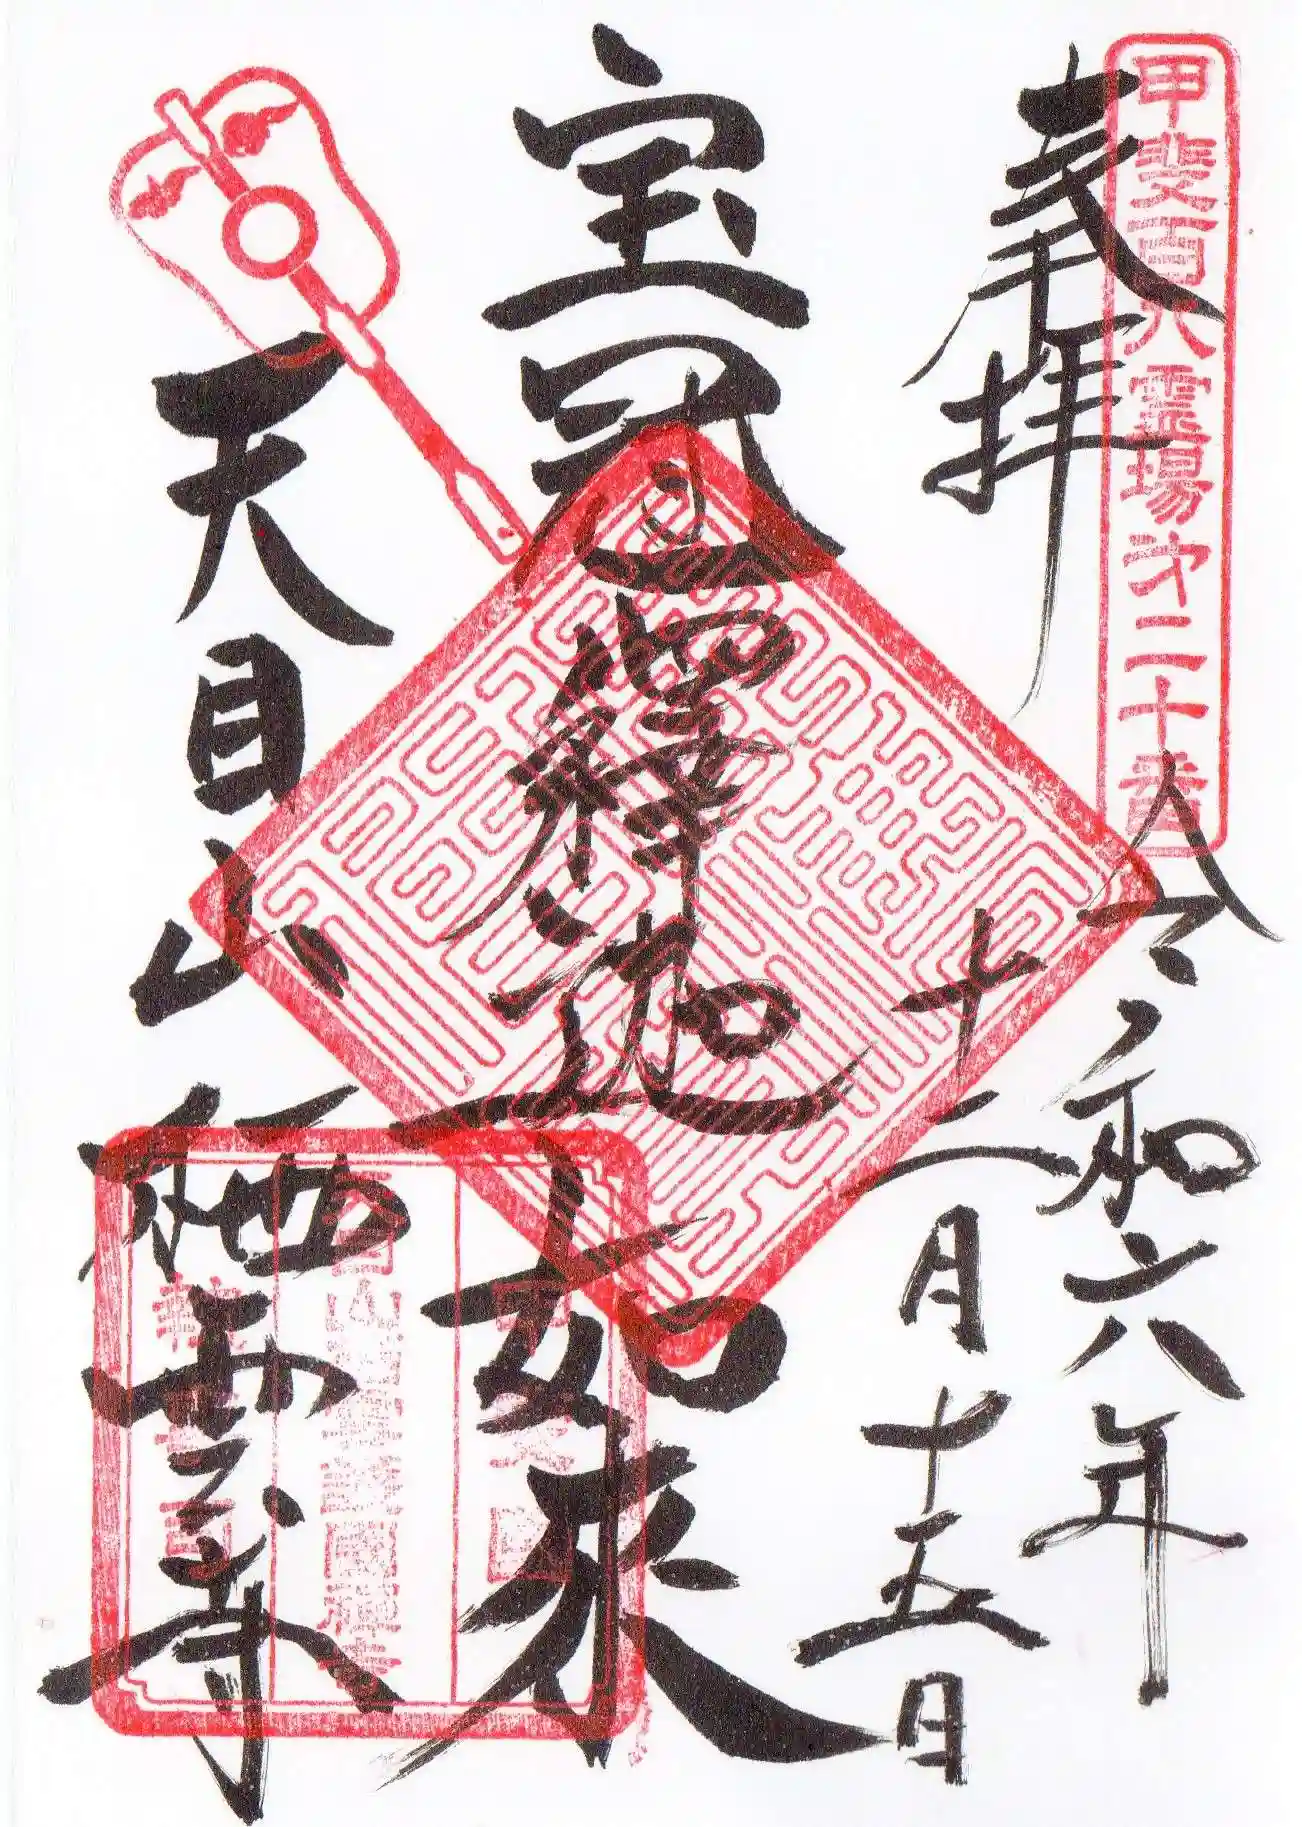 甲斐百八霊場第二十番
奉拝
令和六年
十二月十五日
宝冠釋迦如来
天目山
栖雲寺